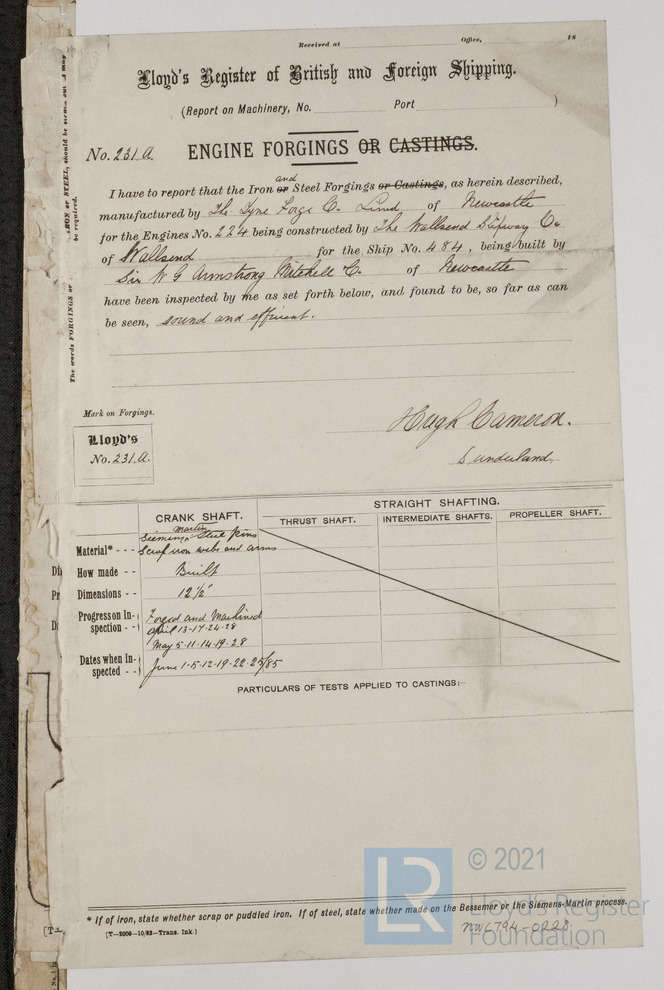 Received at Office, 18
Lloyd's Register of British and Foreign Shipping.
(Report on Machinery, No. Port )
No. 231.A. ENGINE FORGINGS OR CASTINGS.
and
I have to report that the Iron or Steel Forgings or Castings, as herein described,
manufactured by The Tyne Forge Co. Limd of Newcastle
for the Engines No. 224 being constructed by The Wallsend Slipway Co
of Wallsend for the Ship No. 484, being built by
Sir W G Armstrong Mitchell Co. of Newcastle
have been inspected by me as set forth below, and found to be, so far as can
be seen, sound and efficient.
The words FORGINGS or
IRON or STEEL, should be
be required.
Mark on Forgings.
Lloyd's
No. 231.A.
Hugh Cameron.
Sunderland.
CRANK SHAFT. STRAIGHT SHAFTING.
THRUST SHAFT. INTERMEDIATE SHAFTS. PROPELLER SHAFT.
Martin
Material* - - - Siemens Steel pins
Scrap iron webs and arms
How made - - Built
Dimensions - - 12½"
Progress on In- Forged and Machined
spection - - April 13-17-24-28
May 5-11-14-19-28
Dates when In- June 1-5-12-19-22-25/85
spected - -
PARTICULARS OF TESTS APPLIED TO CASTINGS:-
* If of iron, state whether scrap or puddled iron. If of steel, state whether made on the Bessemer or the Siemens-Martin process.
[T—2006—10/83—Trans. Ink.]
NWC794-0228
LR
© 2021
Lloyd's Register
Foundation